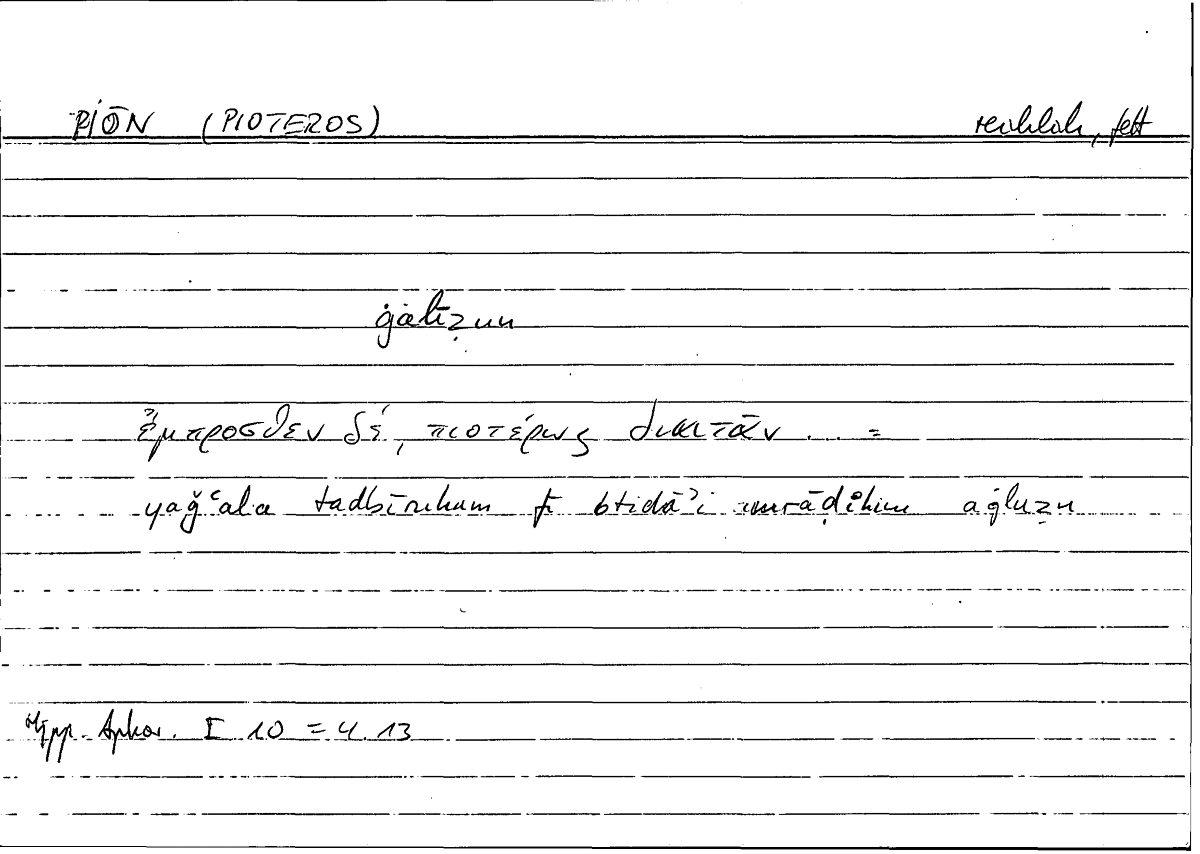 PĪŌN (PIOTEROS) reichlich, fett
ġalīẓun
ἔμπροσθεν δέ, πιοτέρως διαιτᾶν ... =
yaǧʿala tadbīrahum fī btidāʾi amrāḍihim aġluẓu
Hipp. Aphor. I 10 = 4.13